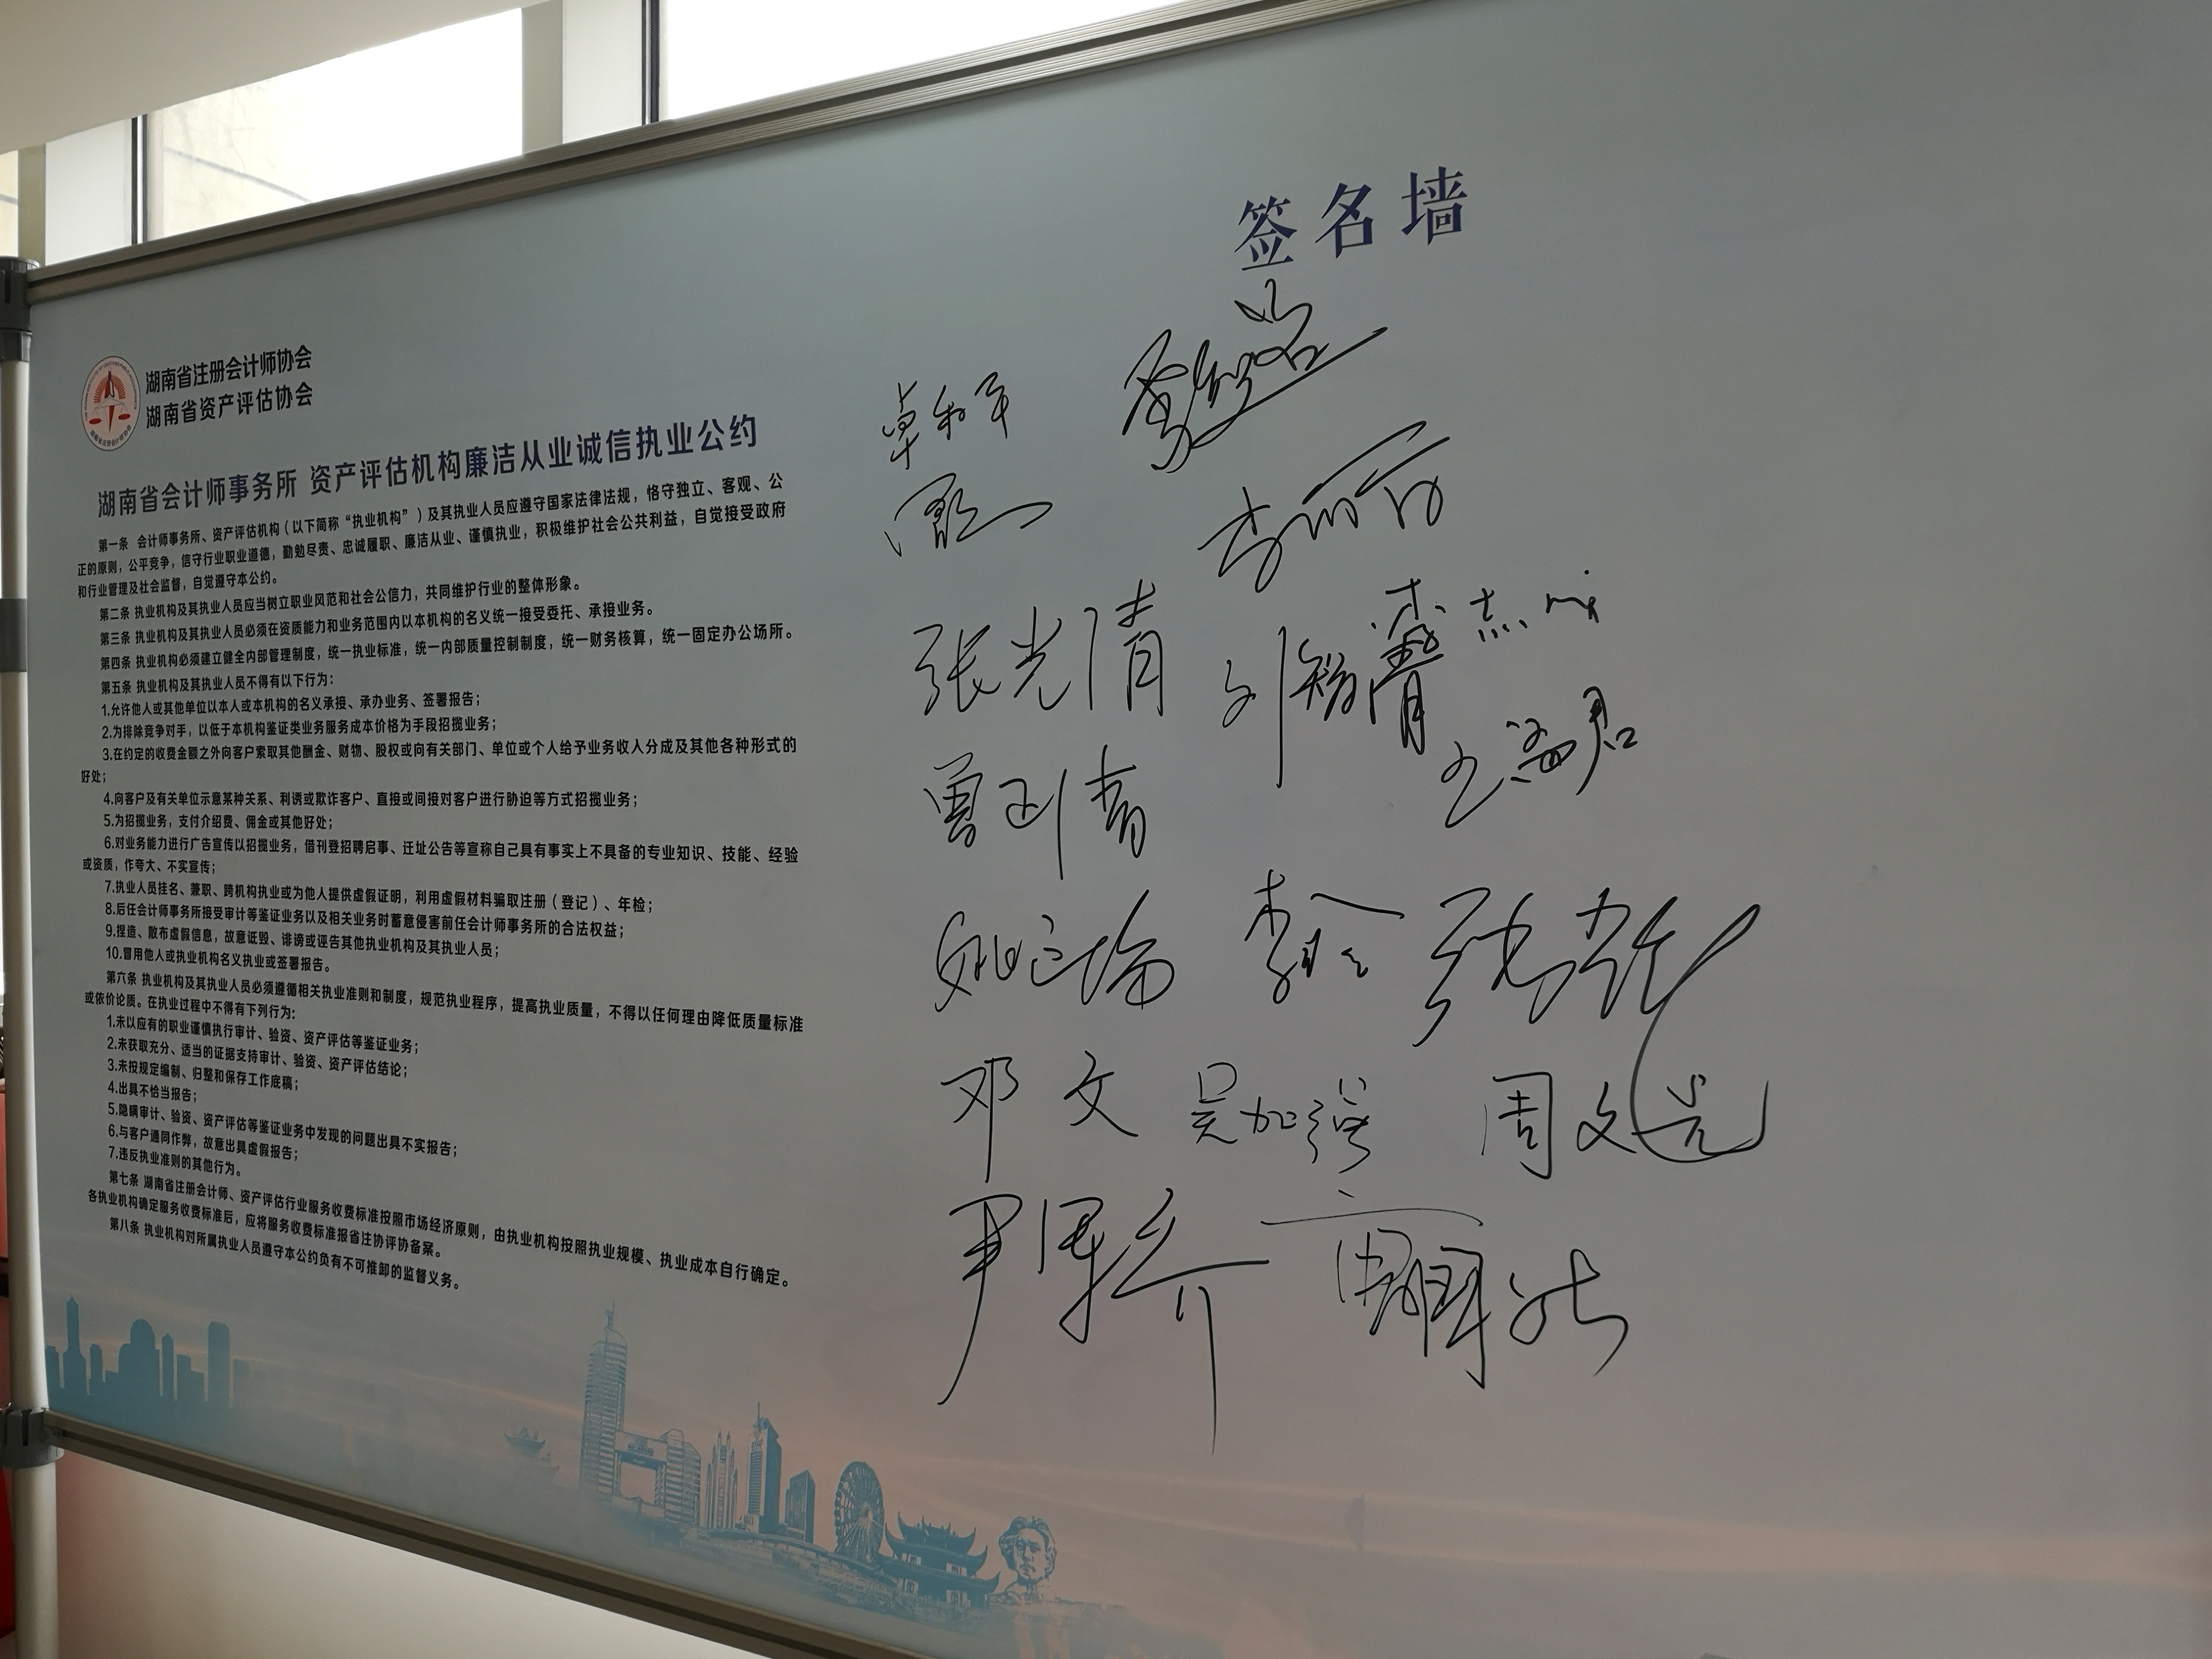 湖南省注册会计师协会
湖南省资产评估协会
湖南省会计师事务所 资产评估机构廉洁从业诚信执业公约
第一条 会计师事务所、资产评估机构（以下简称“执业机构”）及其执业人员应遵守国家法律法规，恪守独立、客观、公
正的原则，公平竞争，信守行业职业道德，勤勉尽责、忠诚履职、廉洁从业、谨慎执业，积极维护社会公共利益，自觉接受政府
和行业管理及社会监督，自觉遵守本公约。
第二条 执业机构及其执业人员应当树立职业风范和社会公信力，共同维护行业的整体形象。
第三条 执业机构及其执业人员必须在资质能力和业务范围内以本机构的名义统一接受委托、承接业务。
第四条 执业机构必须建立健全内部管理制度，统一执业标准，统一内部质量控制制度，统一财务核算，统一固定办公场所。
第五条 执业机构及其执业人员不得有以下行为：
1.允许他人或其他单位以本人或本机构的名义承接、承办业务、签署报告；
2.为排除竞争对手，以低于本机构鉴证类业务服务成本价格为手段招揽业务；
3.在约定的收费金额之外向客户索取其他酬金、财物、股权或向有关部门、单位或个人给予业务收入分成及其他各种形式的
好处；
4.向客户及有关单位示意某种关系、利诱或欺诈客户、直接或间接对客户进行胁迫等方式招揽业务；
5.为招揽业务，支付介绍费、佣金或其他好处；
6.对业务能力进行广告宣传以招揽业务，借刊登招聘启事、迁址公告等宣称自己具有事实上不具备的专业知识、技能、经验
或资质，作夸大、不实宣传；
7.执业人员挂名、兼职、跨机构执业或为他人提供虚假证明，利用虚假材料骗取注册（登记）、年检；
8.后任会计师事务所接受审计等鉴证业务以及相关业务时蓄意侵害前任会计师事务所的合法权益；
9.捏造、散布虚假信息，故意诋毁、诽谤或诬告其他执业机构及其执业人员；
10.冒用他人或执业机构名义执业或签署报告。
第六条 执业机构及其执业人员必须遵循相关执业准则和制度，规范执业程序，提高执业质量，不得以任何理由降低质量标准
或依价论质。在执业过程中不得有下列行为：
1.未以应有的职业谨慎执行审计、验资、资产评估等鉴证业务；
2.未获取充分、适当的证据支持审计、验资、资产评估结论；
3.未按规定编制、归整和保存工作底稿；
4.出具不恰当报告；
5.隐瞒审计、验资、资产评估等鉴证业务中发现的问题出具不实报告；
6.与客户通同作弊，故意出具虚假报告；
7.违反执业准则的其他行为。
第七条 湖南省注册会计师、资产评估行业服务收费标准按照市场经济原则，由执业机构按照执业规模、执业成本自行确定。
各执业机构确定服务收费标准后，应将服务收费标准报省注协评协备案。
第八条 执业机构对所属执业人员遵守本公约负有不可推卸的监督义务。
签名墙
张光清
邓文
吴加强
周文